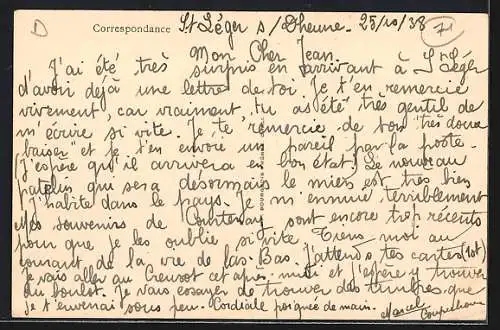 D
Correspondance
St Léger s/Dheune. 25/10/38
71
Mon Cher Jean
J'ai été très surpris en arrivant à St Léger
d'avoir déjà une lettre de toi. Je t'en remercie
vivement, car vraiment, tu as été très gentil de
m'écrire si vite. Je te remercie de ton "très doux
baiser" et je t'en envoie un pareil par la poste.
J'espère qu'il arrivera en bon état. Le nouveau
patelin qui sera désormais le mien est très bien
J'habite dans le pays. Je m'ennuie terriblement
Mes souvenirs de Courtenay sont encore trop récents
pour que je les oublie si vite. Tiens-moi au
courant de la vie de là-Bas. J'attends tes cartes (101)
Je vais aller au Creusot cet après-midi et j'espère y trouver
du boulot. Je vais essayer de trouver des timbres que
je t'enverrai sous peu. Cordiale poignée de main. Marcel